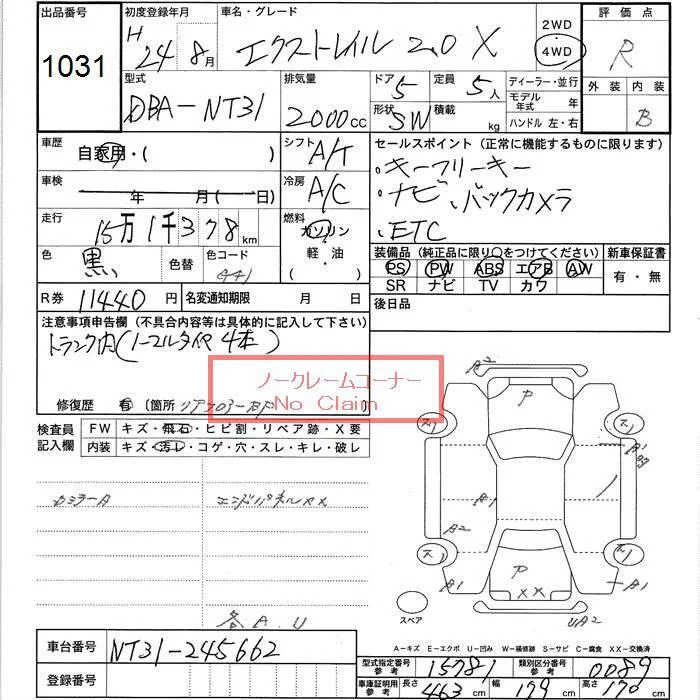 出品番号
1031
初度登録年月
H 24 8月
車名・グレード
エクストレイル 2.0 X
2WD
4WD
評価点
R
外装 内装
B
型式
DBA-NT31
排気量
2000cc
ドア 5
定員 5人
形状 SW
積載 kg
ディーラー・並行
モデル年式 年
ハンドル 左・右
車歴
自家用・( )
シフト
A/T
セールスポイント(正常に機能するものに限ります)
・キーフリーキー
・ナビ、バックカメラ
・ETC
車検
年 月( 日)
冷房
A/C
走行
15万1千378km
燃料
ガソリン
軽・油
・( )
色
黒
色替
色コード
装備品(純正品に限り○をつけてください)
新車保証書
PS PW ABS エアB AW
SR ナビ TV カワ
有・無
R券 11440円
名変通知期限 月 日
後日品
注意事項申告欄(不具合内容等は具体的に記入して下さい)
トランク内(ノーマルタイヤ4本)
ノークレームコーナー
No Claim
修復歴 有 〔箇所 〕
検査員記入欄
FW キズ・飛石・ヒビ割・リペア跡・X要
内装 キズ・汚レ・コゲ・穴・スレ・キレ・破レ
エンドパネルXX
各A.U
B2
P
A1
A1
A2
P
XX
A1
UA2
スペア
A-キズ E-エクボ U-凹み W-補修跡 S-サビ C-腐食 XX-交換済
車台番号
NT31-245662
登録番号
型式指定番号参考 15781
類別区分番号参考 0089
車庫証明用参考
長さ 463cm
幅 179cm
高さ 170cm